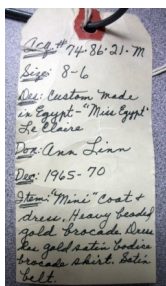 Acq.# 74.86.21.M
Size: 8-6
Des: Custom made
in Egypt - "Miss Egypt"
Le Claire
Don: Ann Linn
Dec: 1965-70
Item: "Mini" coat &
dress. Heavy beaded
gold brocade. Dress
has gold satin bodice
brocade skirt. Satin
belt.